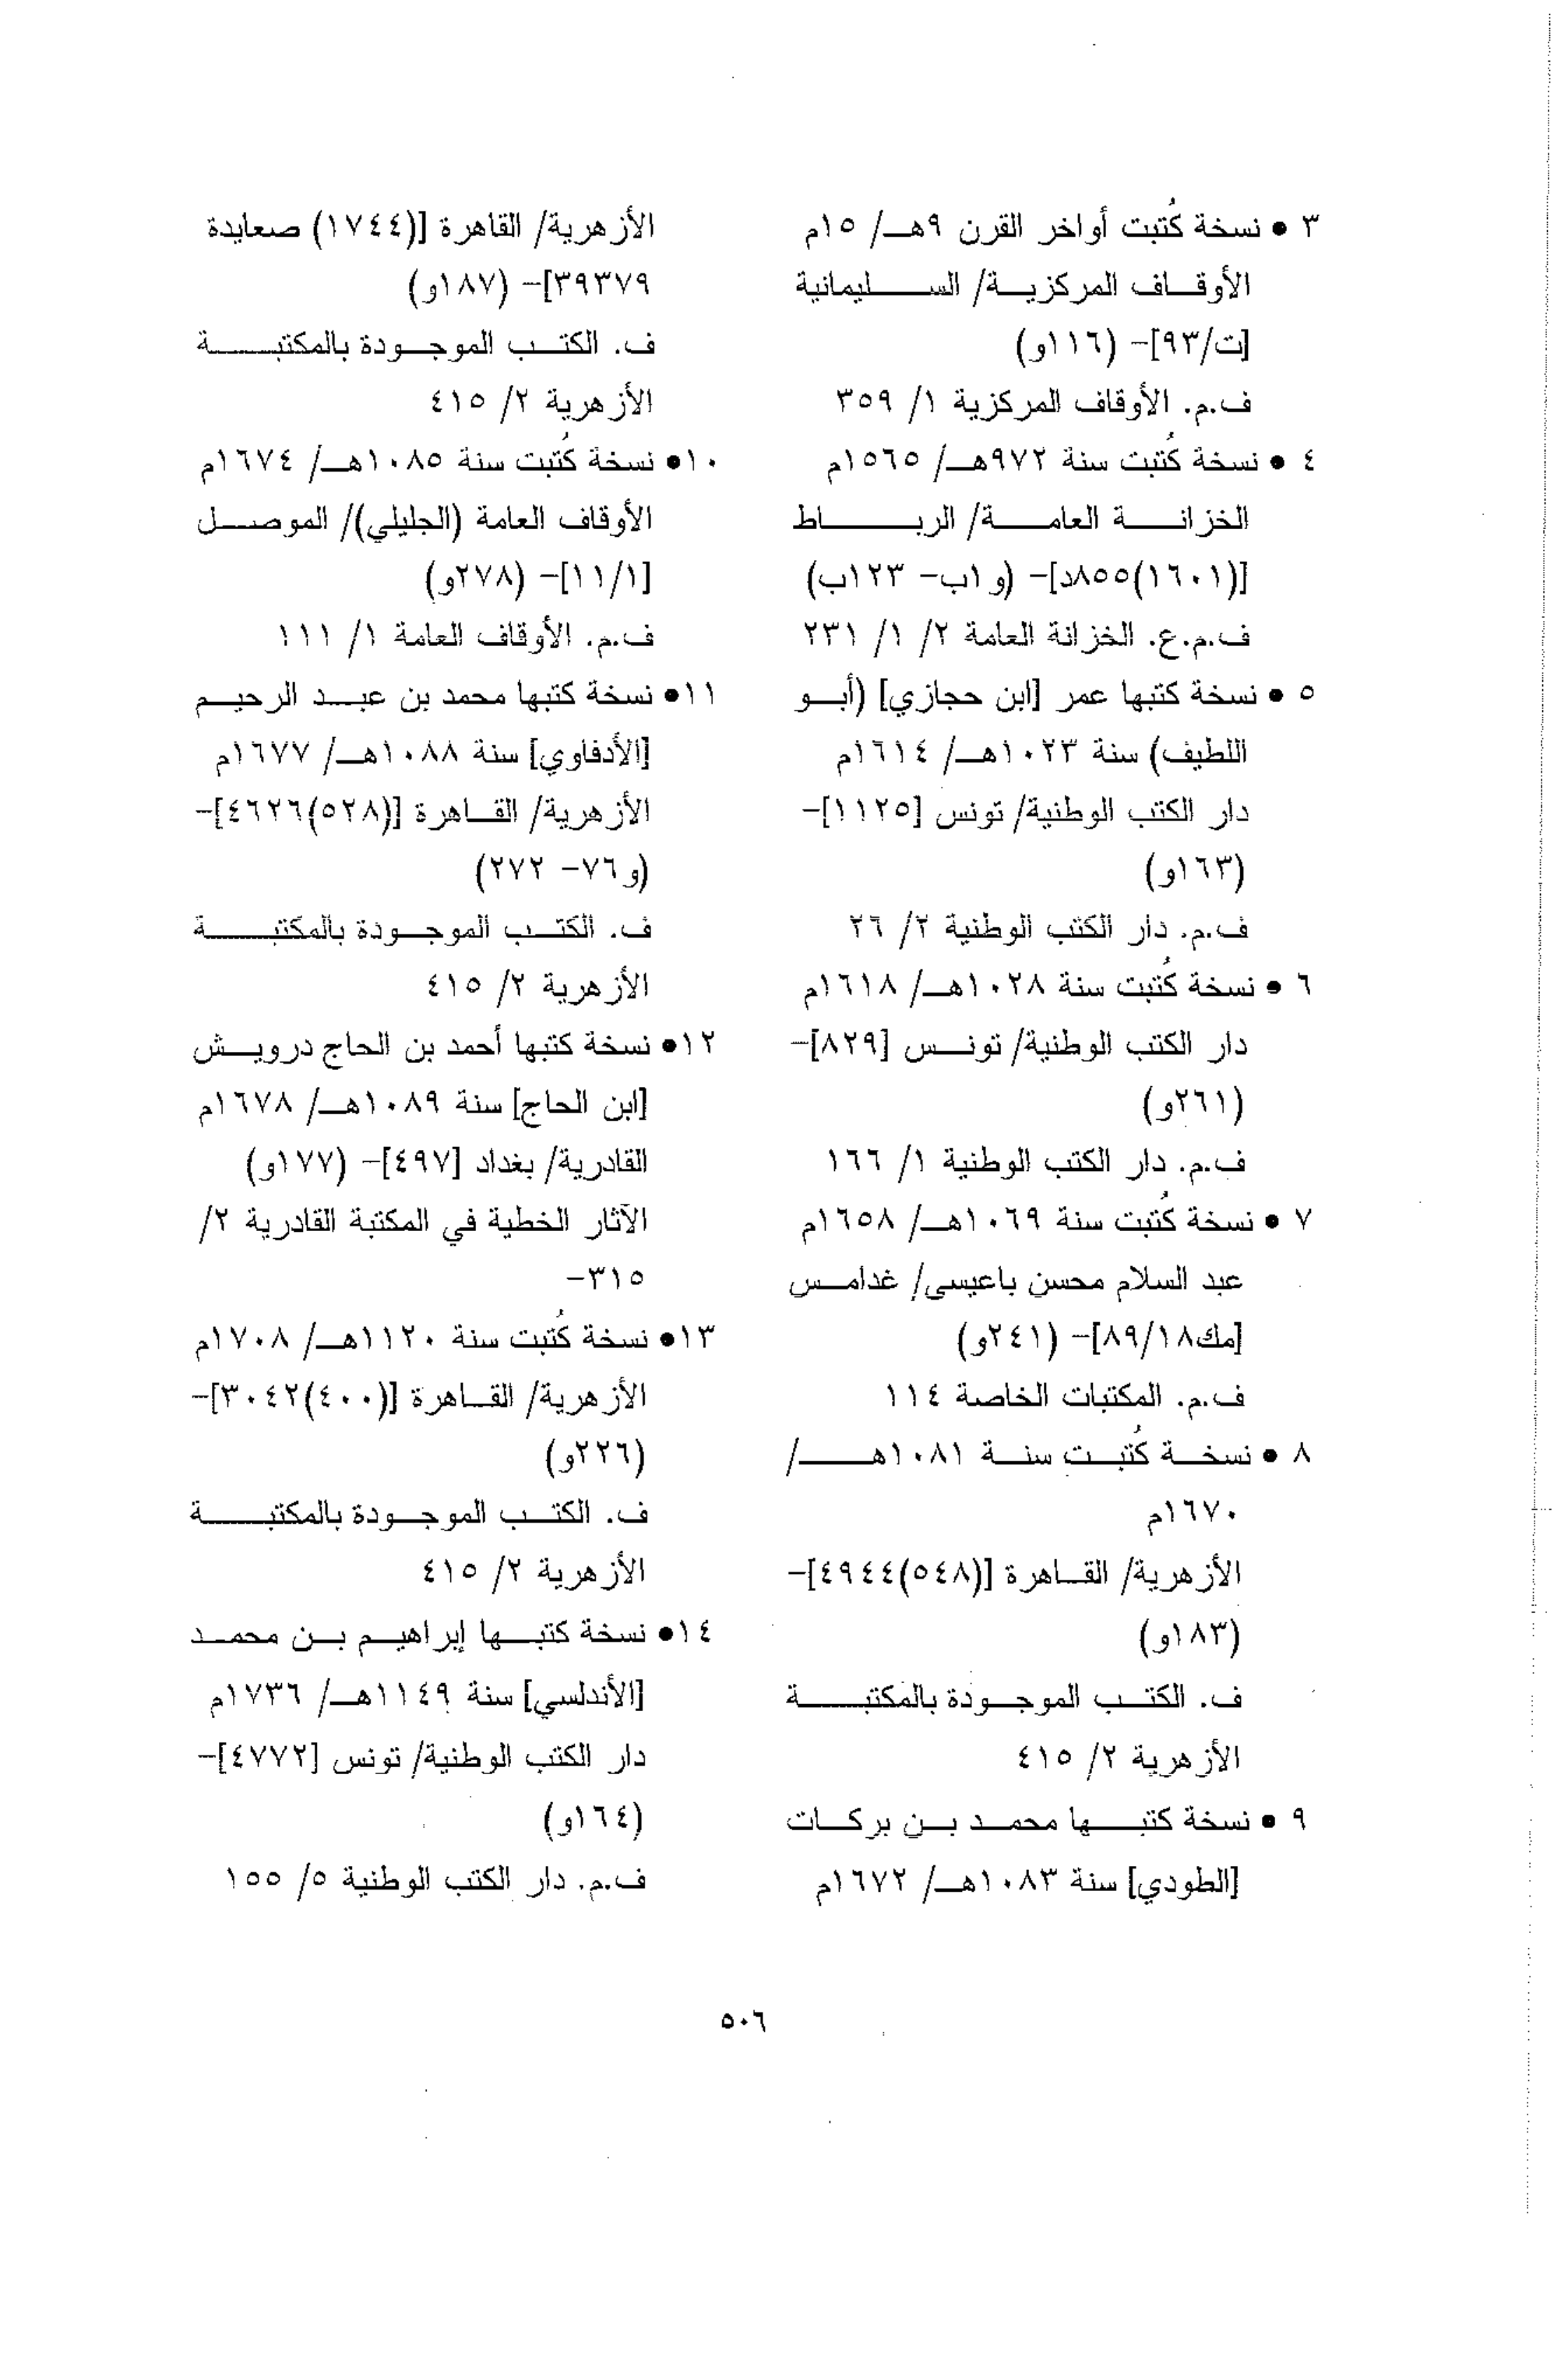 ٣ • نسخة كُتبت أواخر القرن ٩هـ/ ١٥م
الأوقاف المركزية/ السليمانية
[ت/٩٣]- (١١٦و)
ف.م. الأوقاف المركزية ١/ ٣٥٩
٤ • نسخة كُتبت سنة ٩٧٢هـ/ ١٥٦٥م
الخزانة العامة/ الرباط
[(١٦٠١)٨٥٥د]- (و١ب- ١٢٣ب)
ف.م.ع. الخزانة العامة ٢/ ١/ ٢٣١
٥ • نسخة كتبها عمر [ابن حجازي] (أبو
اللطيف) سنة ١٠٢٣هـ/ ١٦١٤م
دار الكتب الوطنية/ تونس [١١٢٥]-
(١٦٣و)
ف.م. دار الكتب الوطنية ٢/ ٢٦
٦ • نسخة كُتبت سنة ١٠٢٨هـ/ ١٦١٨م
دار الكتب الوطنية/ تونس [٨٢٩]-
(٢٦١و)
ف.م. دار الكتب الوطنية ١/ ١٦٦
٧ • نسخة كُتبت سنة ١٠٦٩هـ/ ١٦٥٨م
عبد السلام محسن باعيسى/ غدامس
[مك٨٩/١٨]- (٢٤١و)
ف.م. المكتبات الخاصة ١١٤
٨ • نسخة كُتبت سنة ١٠٨١هـ/
١٦٧٠م
الأزهرية/ القاهرة [(٥٤٨)٤٩٤٤]-
(١٨٣و)
ف. الكتب الموجودة بالمكتبة
الأزهرية ٢/ ٤١٥
٩ • نسخة كتبها محمد بن بركات
[الطودي] سنة ١٠٨٣هـ/ ١٦٧٢م
الأزهرية/ القاهرة [(١٧٤٤) صعايدة
٣٩٣٧٩]- (١٨٧و)
ف. الكتب الموجودة بالمكتبة
الأزهرية ٢/ ٤١٥
١٠• نسخة كُتبت سنة ١٠٨٥هـ/ ١٦٧٤م
الأوقاف العامة (الجليلي)/ الموصل
[١١/١]- (٢٧٨و)
ف.م. الأوقاف العامة ١/ ١١١
١١• نسخة كتبها محمد بن عبد الرحيم
[الأدفاوي] سنة ١٠٨٨هـ/ ١٦٧٧م
الأزهرية/ القاهرة [(٥٢٨)٤٦٢٦]-
(و٧٦- ٢٧٢)
ف. الكتب الموجودة بالمكتبة
الأزهرية ٢/ ٤١٥
١٢• نسخة كتبها أحمد بن الحاج درويش
[ابن الحاج] سنة ١٠٨٩هـ/ ١٦٧٨م
القادرية/ بغداد [٤٩٧]- (١٧٧و)
الآثار الخطية في المكتبة القادرية ٢/
٣١٥-
١٣• نسخة كُتبت سنة ١١٢٠هـ/ ١٧٠٨م
الأزهرية/ القاهرة [(٤٠٠)٣٠٤٢]-
(٢٢٦و)
ف. الكتب الموجودة بالمكتبة
الأزهرية ٢/ ٤١٥
١٤• نسخة كتبها إبراهيم بن محمد
[الأندلسي] سنة ١١٤٩هـ/ ١٧٣٦م
دار الكتب الوطنية/ تونس [٤٧٧٢]-
(١٦٤و)
ف.م. دار الكتب الوطنية ٥/ ١٥٥
٥٠٦